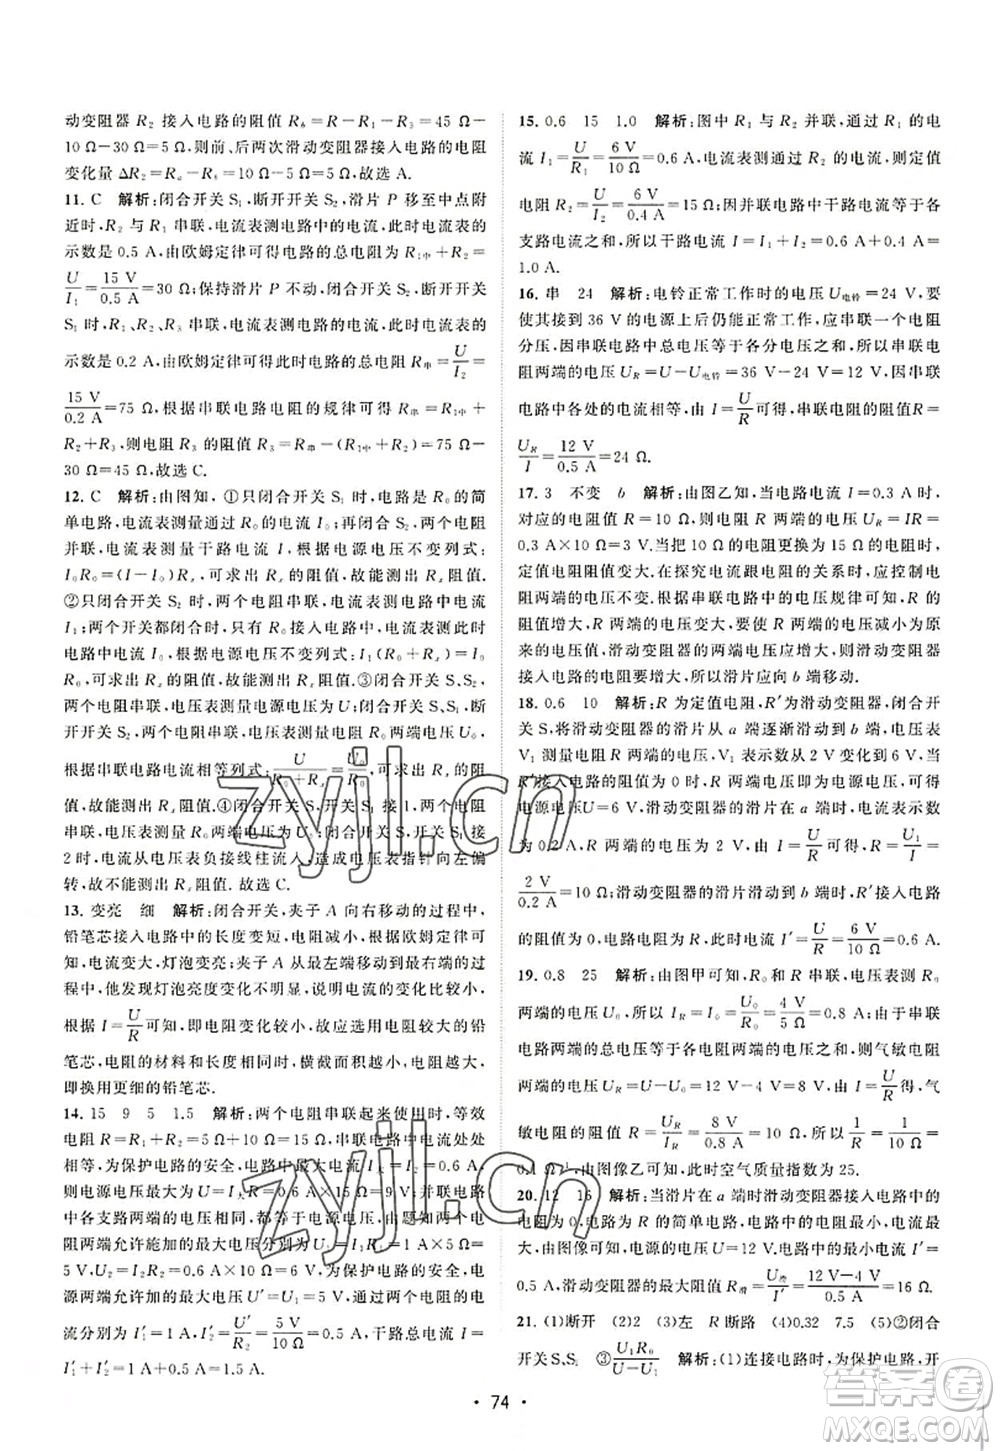 动变阻器 R₂ 接入电路的阻值 R₆=R-R₁-R₃=45 Ω-
10 Ω-30 Ω=5 Ω,则前、后两次滑动变阻器接入电路的电阻
变化量 ΔR₂=Rₐ-R₆=15 Ω-5 Ω=10 Ω,故选 A.
11. C 解析:闭合开关 S₁,断开开关 S₂,滑片 P 移至中点附
近时,R₂ 与 R₁ 串联,电流表测电路中的电流,此时电流表的
示数是 0.5 A,由欧姆定律可得电路的总电阻 R₁中+R₂=
U/I₁=15 V/0.5 A=30 Ω;保持滑片 P 不动,闭合开关 S₂,断开开关
S₁ 时,R₁、R₂、R₃ 串联,电流表测电路中的电流,此时电流表的
示数是 0.2 A,由欧姆定律可得此时电路的总电阻 R串=U/I₂=
15 V/0.2 A=75 Ω,根据串联电路电阻的规律可得 R串=R₁中+
R₂+R₃,则电阻 R₃ 的阻值 R₃=R串-(R₁中+R₂)=75 Ω-
30 Ω=45 Ω,故选 C.
12. C 解析:由图知,①只闭合开关 S₁ 时,电路是 R₀ 的简
单电路,电流表测量通过 R₀ 的电流 I₀;开关都闭合,两个电阻
并联,电流表测量干路电流 I,根据电源电压不变列式:
I₀R₀=(I-I₀)Rₓ,可求出 Rₓ 的阻值,故能测出 Rₓ 的阻值.
②只闭合开关 S₂ 时,两个电阻串联,电流表测量电路中的电流
I₁;两个开关都闭合时,只有 R₀ 接入电路中,电流表测量此时
电路中的电流 I₀,根据电源电压不变列式:I₁(R₀+Rₓ)=I₀R₀,
可求出 Rₓ 的阻值,故能测出 Rₓ 的阻值.③闭合开关 S、S₂ 时,
两个电阻串联,电压表测量电源电压为 U;闭合开关 S、S₁,断
开开关 S₂ 时,两个电阻串联,电压表测量电阻 R₀ 两端电压 U₀,
根据串联电路电流相等列式:U/(R₀+Rₓ)=U₀/R₀,可求出 Rₓ 的阻
值,故能测出 Rₓ 的阻值.④闭合开关 S、开关 S₁ 接 1,两个电阻
串联,电压表测量 R₀ 两端电压为 U₀;闭合开关 S、开关 S₁ 接
2 时,电流从电压表负接线柱流入,造成电压表指针向左偏
转,故不能测出 Rₓ 阻值.故选 C.
13. 变亮 细 解析:闭合开关,夹子 A 向右移动的过程中,
铅笔芯接入电路中的长度变短,电阻减小,根据欧姆定律可
知,电流变大,灯泡变亮;夹子 A 从最右端移动到最左端的过程
中,他们发现灯泡亮度变化不明显,说明电流的变化较小,
根据 I=U/R 可知,即电阻变化较小,故应选用电阻较大的铅
笔芯,电阻的材料和长度一定时,横截面积越小,电阻越大,
即换用更细的铅笔芯.
14. 15 9 5 1.5 解析:两个电阻串联起来使用时,等效
电阻 R=R₁+R₂=5 Ω+10 Ω=15 Ω,串联电路中电流处处
相等,为保护电路的安全,电路中的最大电流 I大=I₂=0.6 A,
则电源电压的最大电压 U=I大R=0.6 A×15 Ω=9 V.并联电路
中各支路两端的电压相等,都等于电源电压,由题知两个电
阻两端允许施加的最大电压分别为 U₁=I₁R₁=1 A×5 Ω=
5 V,U₂=I₂R₂=0.6 A×10 Ω=6 V,为保护电路的安全,则
电源两端允许加的最大电压 U′=U₁=5 V,通过两个电阻的电
流分别为 I₁′=I₁=1 A,I₂′=U′/R₂=5 V/10 Ω=0.5 A,干路总电流 I′=
I₁′+I₂′=1 A+0.5 A=1.5 A.
15. 0.6 15 1.0 解析:图中 R₁ 与 R₂ 并联,通过 R₁ 的电
流 I₁=U/R₁=6 V/10 Ω=0.6 A,电流表测通过 R₂ 的电流,则定值
电阻 R₂=U/I₂=6 V/0.4 A=15 Ω;因为并联电路中干路电流等于各
支路电流之和,所以干路电流 I=I₁+I₂=0.6 A+0.4 A=
1.0 A.
16. 串 24 解析:电铃正常工作时的电压 U电铃=24 V,要
使其接到 36 V 的电源上后仍能正常工作,应串联一个电阻
分压,因串联电路中总电压等于各分电压之和,所以串联电
阻两端的电压 UR=U-U电铃=36 V-24 V=12 V,因串联
电路中各处的电流相等,由 I=U/R可得,串联电阻的阻值R=
UR/I=12 V/0.5 A=24 Ω.
17. 3 不变 b 解析:由图乙知,当电路中电流 I=0.3 A 时,
对应的电阻值 R=10 Ω,则电阻 R 两端的电压 UR=IR=
0.3 A×10 Ω=3 V.当把 10 Ω 的电阻更换为 15 Ω 的电阻时,
定值电阻阻值变大.在探究电流跟电阻的关系时,应控制电阻
两端的电压不变.根据串联电路的分压规律可知,电阻 R 的
阻值增大,R 两端电压变大,要使电阻 R 两端的电压仍为原
来的电压不变,滑动变阻器的两端电压应增大,滑动变阻器接
入电路的电阻要增大,所以滑片应向 b 端移动.
18. 0.6 10 解析:R 为定值电阻,R′为滑动变阻器,闭合开
关 S,将滑动变阻器的滑片从 a 端逐渐滑动到 b 端,电压表
V₁ 测量电阻 R 两端的电压,V₁ 表示数从 2 V 变化到 6 V,当
R′接入电路的阻值为 0 时,R 两端电压即为电源电压,可得
电源电压U=6 V,滑动变阻器的滑片在 a 端时,电流表示数
为 0.2 A,R 两端的电压为 2 V,由 I=U/R可得,电阻 R=U₁/I=
2 V/0.2 A=10 Ω;当滑动变阻器的滑片滑动到 b 端时,R′接入电路
的阻值为 0,电路电阻为 R,此时电流 I′=U/R=6 V/10 Ω=0.6 A.
19. 0.8 25 解析:由图甲可知,R₀ 和 R 串联,电压表测 R₀
两端的电压 U₀,所以 IR=I₀=U₀/R₀=4 V/5 Ω=0.8 A;由于串联
电路两端的总电压等于各电阻两端的电压之和,则气敏电阻
两端的电压 UR=U-U₀=12 V-4 V=8 V,由 I=U/R得,气
敏电阻的阻值 R=UR/IR=8 V/0.8 A=10 Ω,所以,1/R=1/10 Ω=
0.1 Ω⁻¹,由图像乙可知,此时空气质量指数为 25.
20. 12 16 解析:滑片在 a 端时滑动变阻器接入电路中的
电阻为 0,电路为 R 的简单电路,由图像可知,电源的电压为 12 V;
滑片在 b 端时,由图像可知,U滑=8 V,电路中的电流 I′=
0.5 A,滑动变阻器的最大阻值 R滑=U滑/I′=(12 V-4 V)/0.5 A=16 Ω.
21. (1)断开 (2)3 (3)左 R 断路 (4)0.32 7.5 (5)②闭合
开关S、S₂ ③U₁R₀/(U-U₁) 解析:(1)连接电路时,为保护电路,开
· 74 ·
zyjl.cn
zyjl.cn
答案圈
MXQE.COM